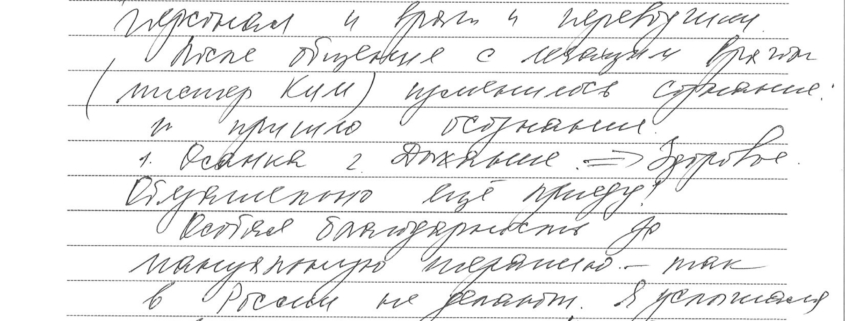 персонал и врачи и переводчики
После общения с лечащим врачом
(мистер Ким) изменилось сознание:
и пришло осознание.
1. Осанка 2. Дыхание. => Здоровье.
Обязательно ещё приеду!
Особая благодарность за
мануальную терапию – так
в России не делают. Я услышала